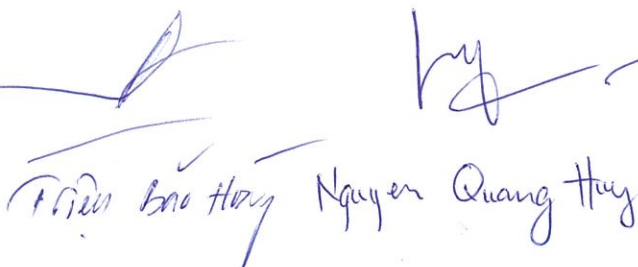 Triệu Bảo Hoàng Nguyen Quang Huy